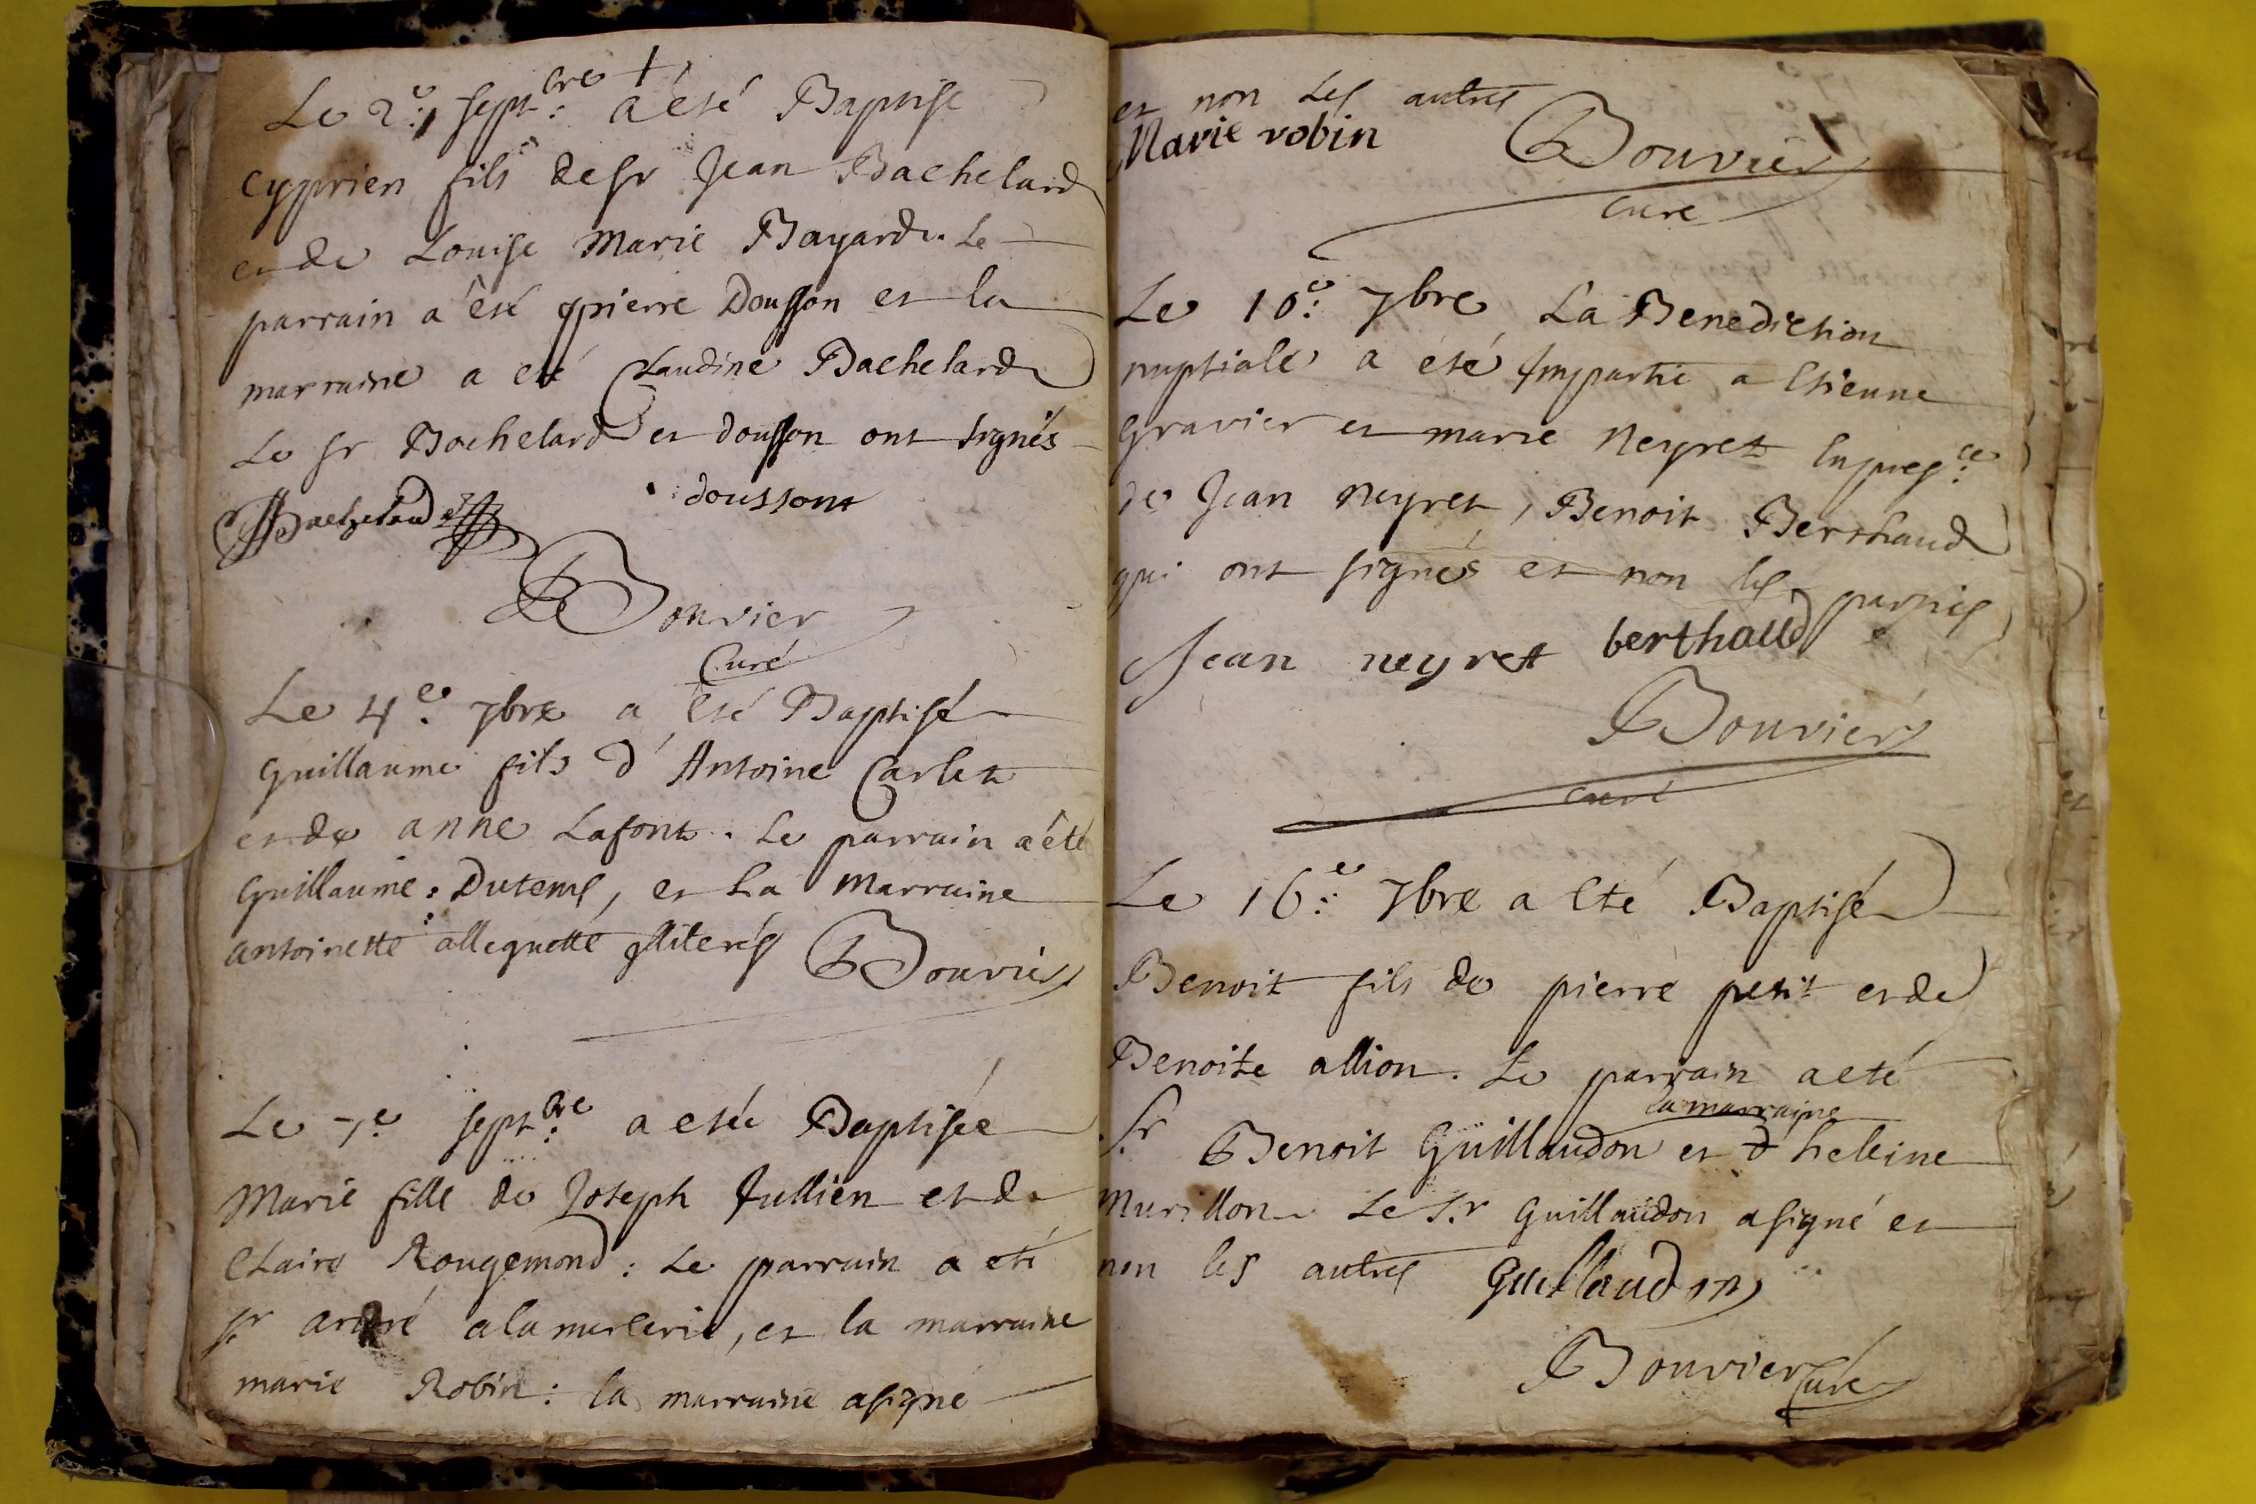 Le 2e: septbre: a été Baptisé
cyprien fils de Sr Jean Bachelard
et de Louise Marie Bayard. Le
parrain a été pierre Dousson et la
marraine a eté Claudine Bachelard
Le Sr Bachelard et dousson ont signés
Bachelard doussont
Bouvier
Curé
Le 4e: 7bre a été Baptisé
Guillaume fils d'Antoine Carlet
et de anne Lafont. Le parrain a été
Guillaume Dutems, et La Marraine
antoinette alleguette illiterés Bouvier
Le 7e septbre: a etée Baptisée
Marie fille de Joseph Jullien et de
Claire Rougemond: Le parrain a eté
Sr André alamercerie, et la marraine
marie Robin: la marraine a signé
et non Les autres
Marie robin Bouvier
Curé
Le 10e: 7bre La Benediction
nuptiale a été Impartie a Etienne
Gravier et marie Neyret En presce:
de Jean neyret, Benoit Berthaud
qui ont signés et non les parties
Jean neyret berthaud
Bouvier
curé
Le 16e: 7bre a Eté Baptisé
Benoit fils de pierre petit et de
Benoite allion. Le parrain a eté
la marraine
Sr Benoit Guillaudon et d heleine
Murillon. Le S.r Guillaudon a signé et
non les autres Guillaudon
Bouvier Curé